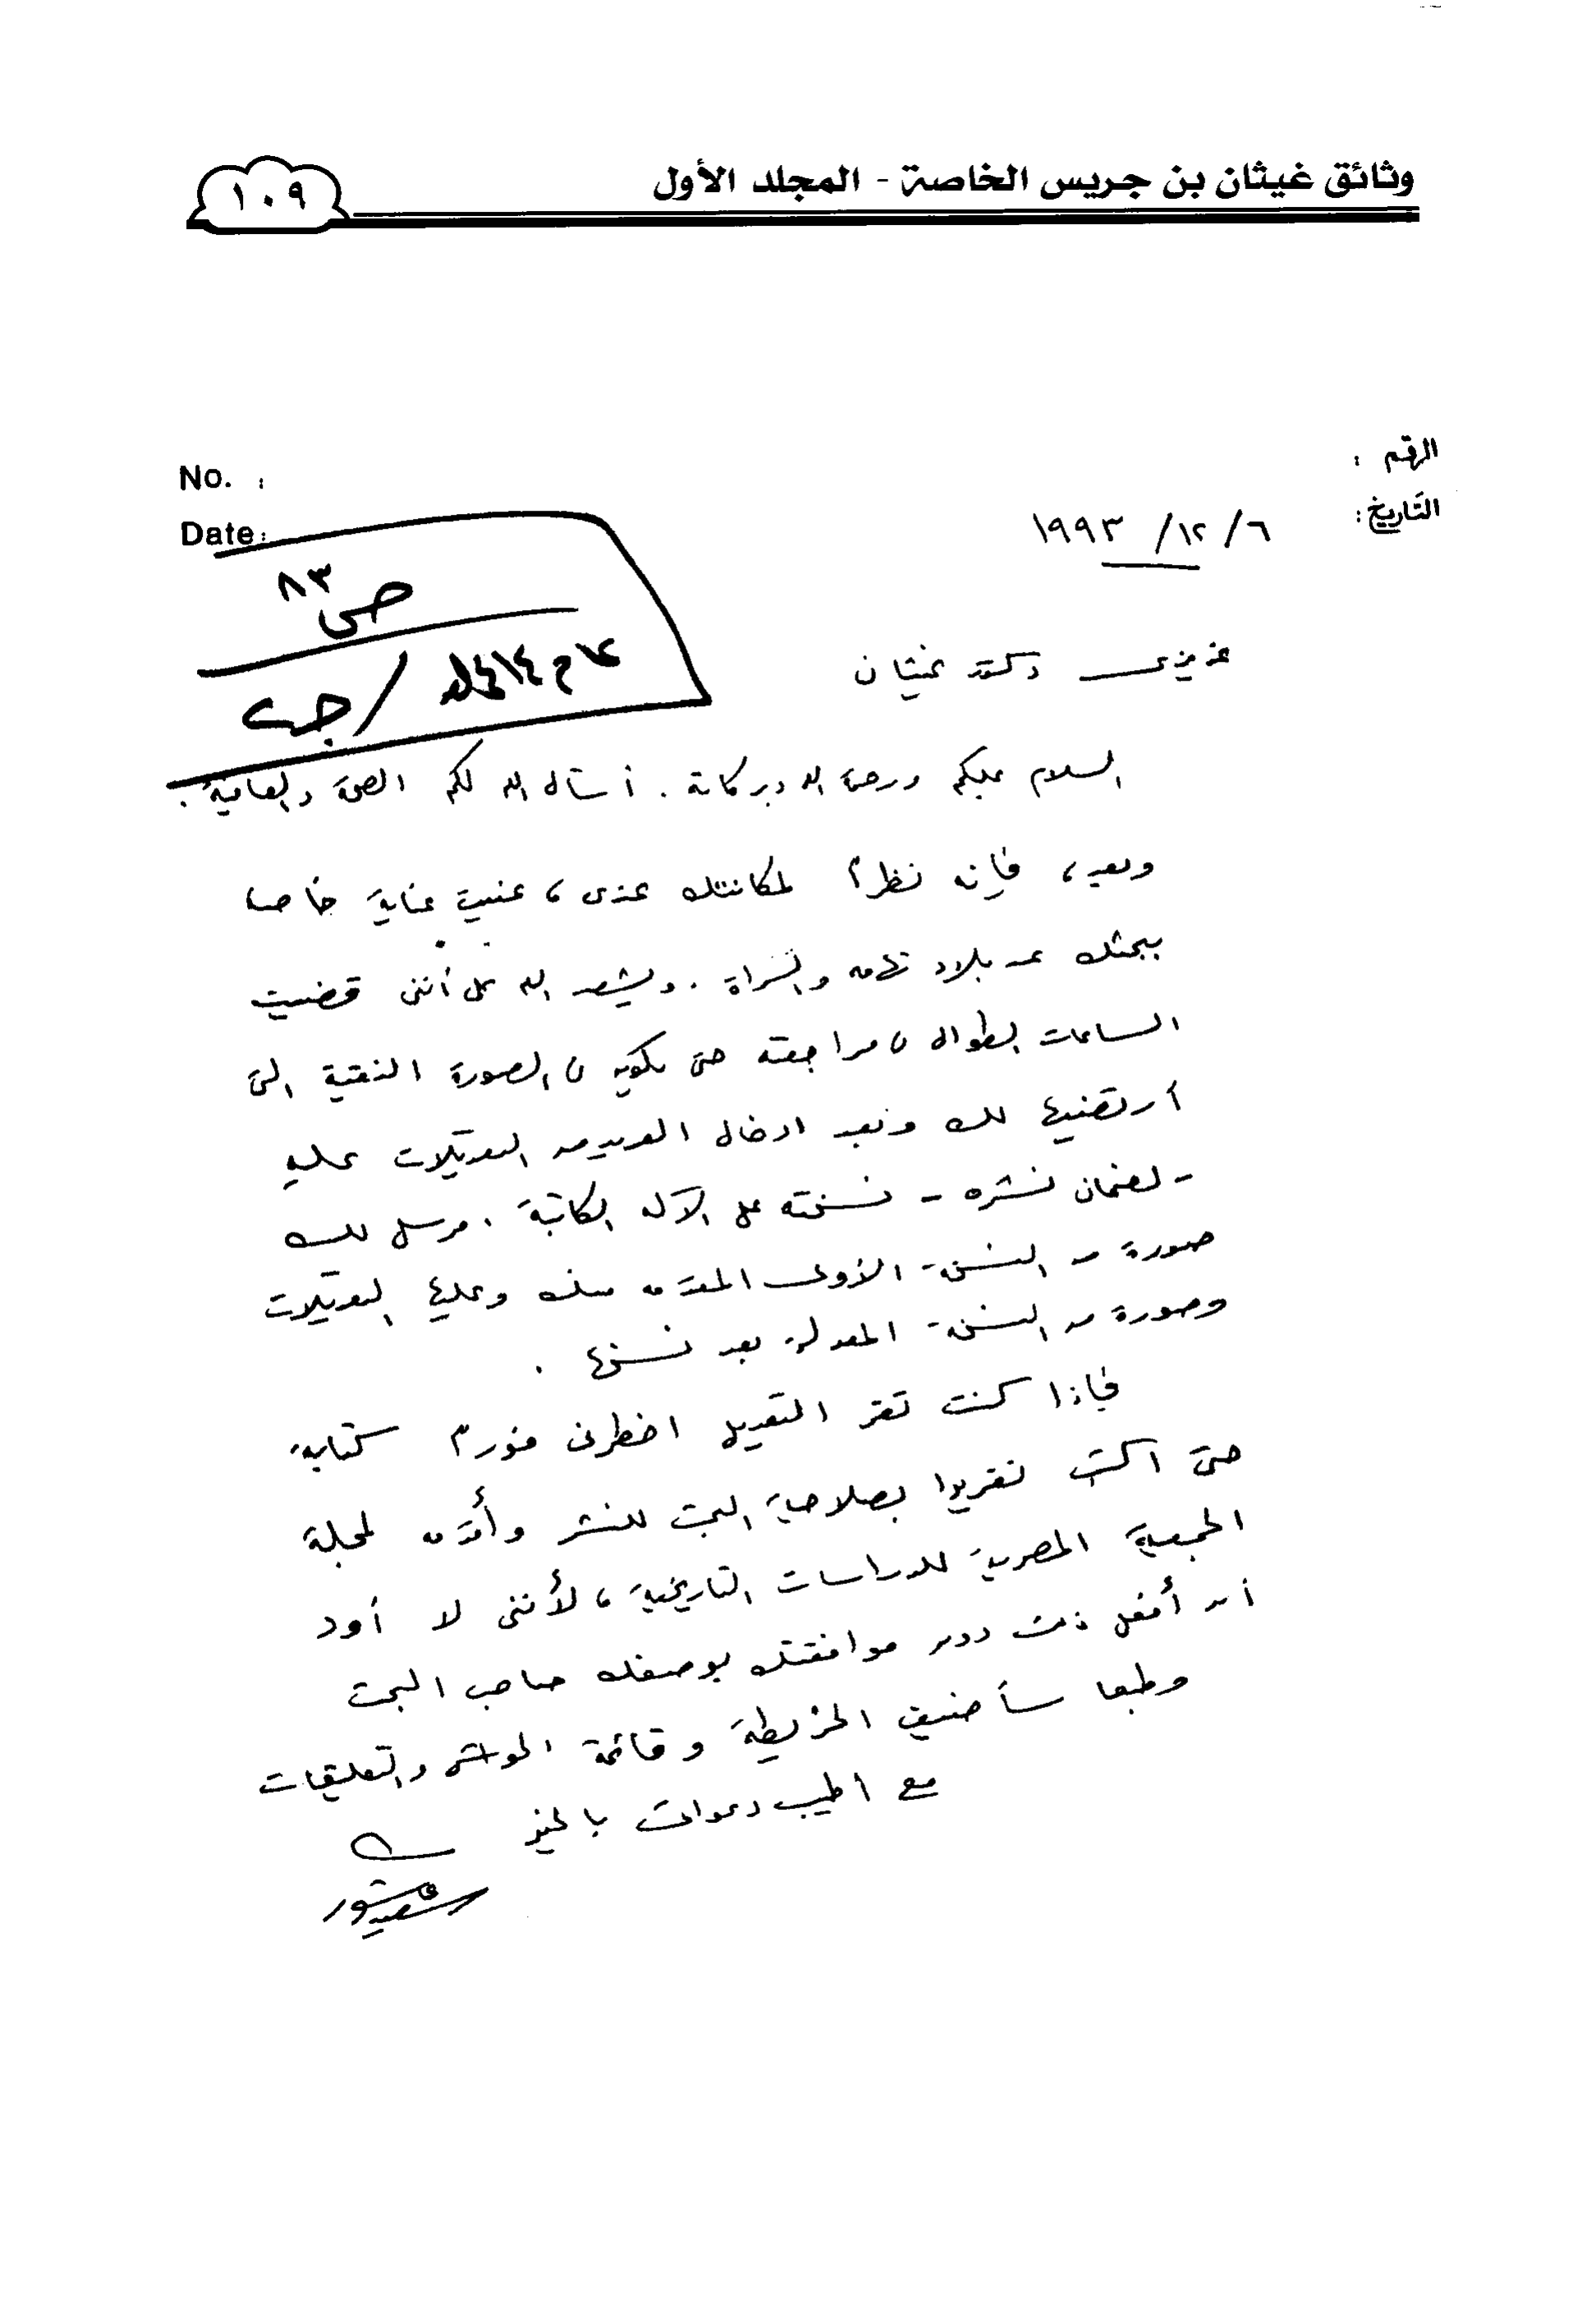 وثائق غيثان بن جريس الخاصة - المجلد الأول
١٠٩
الرقم :
No. :
التاريخ: ٦/ ١٢/ ١٩٩٣
Date:
ص ٨٣
عام ١٤١٤هـ / جـ٢
عزيزى دكتور غيثان
السلام عليكم ورحمة الله وبركاته . أسأل الله لكم الصحة والعافية .
وبعد، فإنه نظراً لمكانتك عندى، عنيت عناية خاصة
ببحثك عن بلاد تهامة والسراة . ويشهد الله على أننى قضيت
الساعات الطوال فى مراجعته حتى يكون فى الصورة النقية التى
أرتضيها لك وبعد ادخال العديد من التعديلات عليه
- لضمان نشره - نسخته على الآلة الكاتبة . مرسل لك
صورة من النسخة الأولى المقدمة منك وعليها التعديلات
وصورة من النسخة المعدلة بعد نسخها .
فإذا كنت تقر التعديل اخطرنى فوراً كتابة
حتى اكتب تقريرا بصلاحية البحث للنشر وأقدمه لمجلة
الجمعية المصرية للدراسات التاريخية، لأننى لا أود
أن أفعل ذلك دون موافقتك بوصفك صاحب البحث
وطبعا سأضيف الخريطة وقائمة الحواشى والتعليقات
مع اطيب دعواتى بالخير
سعيد عاشور